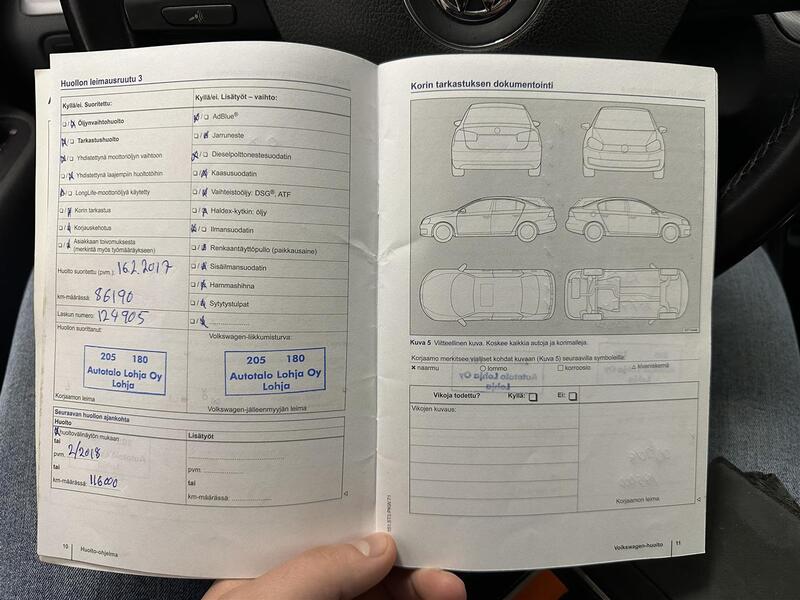 Huollon leimausruutu 3
Kyllä/ei. Suoritettu:
Öljynvaihtohuolto
Tarkastushuolto
Yhdistettynä moottoriöljyn vaihtoon
Yhdistettynä laajempiin huoltotöihin
LongLife-moottoriöljyä käytetty
Korin tarkastus
Korjauskehotus
Asiakkaan toivomuksesta
(merkintä myös työmääräykseen)
Huolto suoritettu (pvm.): 16.2.2017
km-määrässä: 86190
Laskun numero: 124905
Huollon suorittanut:
205 180
Autotalo Lohja Oy
Lohja
Korjaamon leima
Kyllä/ei. Lisätyöt – vaihto:
AdBlue®
Jarruneste
Dieselpolttonestesuodatin
Kaasusuodatin
Vaihteistoöljy: DSG®, ATF
Haldex-kytkin: öljy
Ilmansuodatin
Renkaantäyttöpullo (paikkausaine)
Sisäilmansuodatin
Hammashihna
Sytytystulpat
Volkswagen-liikkumisturva:
205 180
Autotalo Lohja Oy
Lohja
Volkswagen-jälleenmyyjän leima
Seuraavan huollon ajankohta
Huolto
huoltovälinäytön mukaan
tai
pvm. 2/2018
tai
km-määrässä: 116000
Lisätyöt
pvm.
tai
km-määrässä:
10 Huolto-ohjelma
Korin tarkastuksen dokumentointi
Kuva 5 Viitteellinen kuva. Koskee kaikkia autoja ja korimalleja.
Korjaamo merkitsee vialliset kohdat kuvaan (Kuva 5) seuraavilla symboleilla:
× naarmu ○ lommo □ korroosio △ kiveniskemä
Vikoja todettu? Kyllä: Ei:
Vikojen kuvaus:
Korjaamon leima
Volkswagen-huolto 11